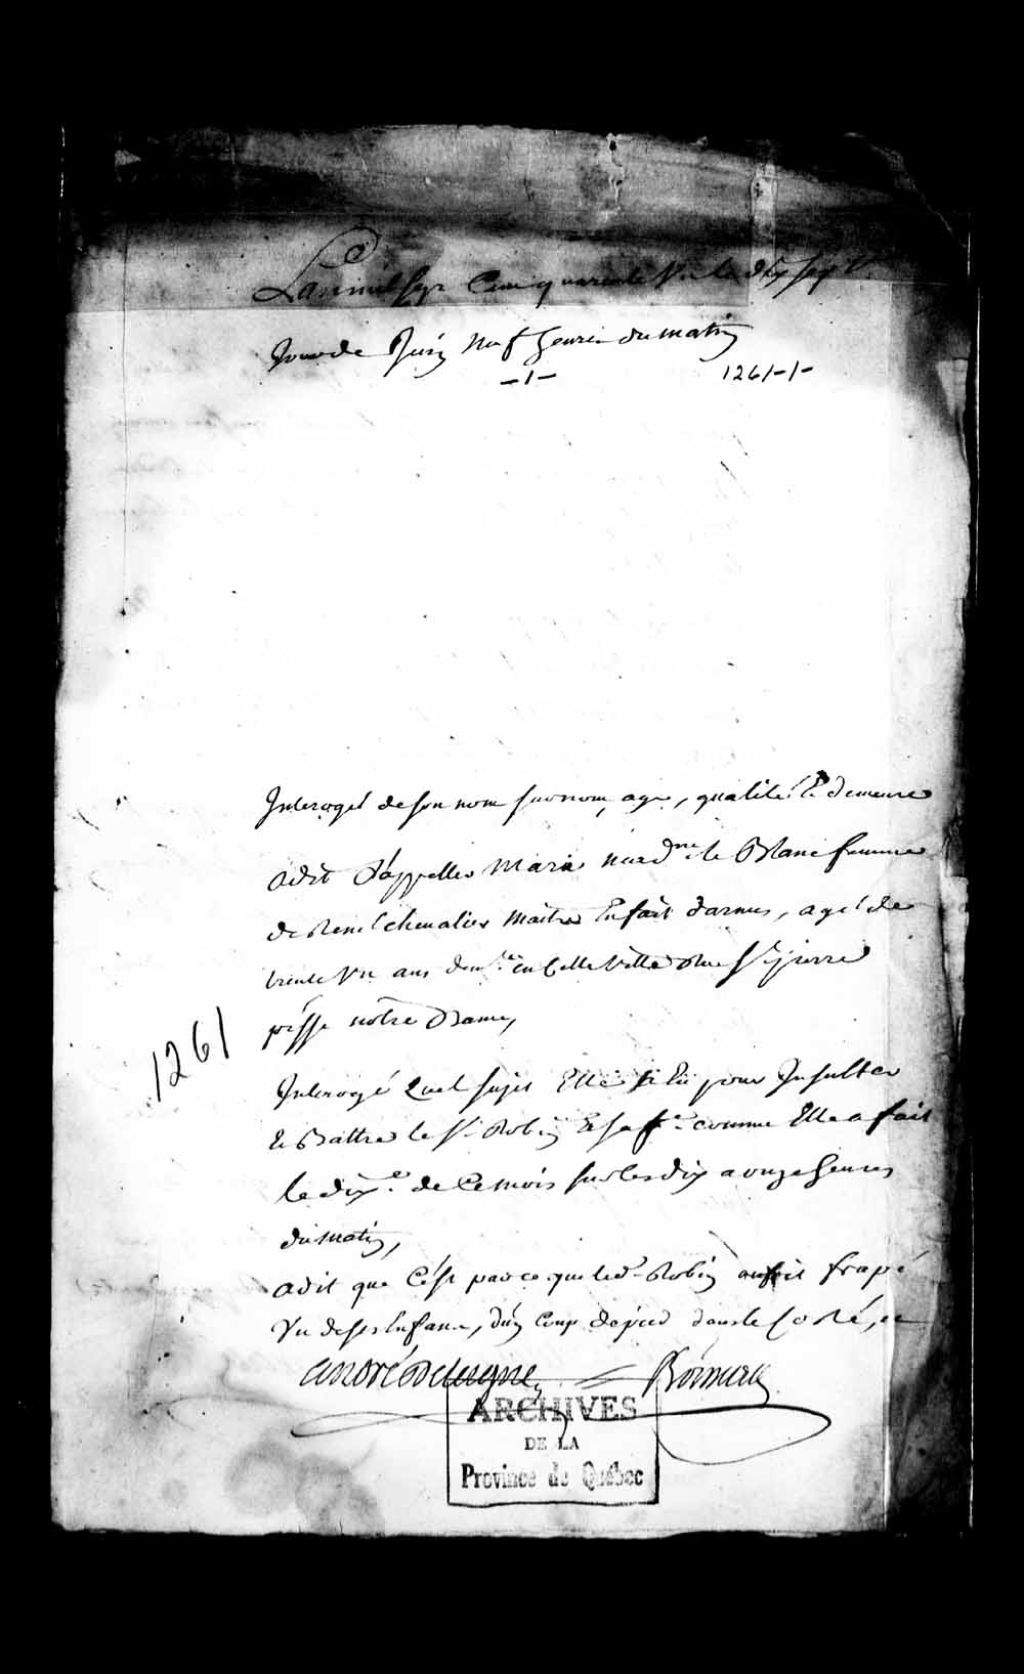 Lan mil sept Cent quarante Un le dix sept e.
Jour de Juin Neuf heures du matin
-1- 1261-1-
Interogéé de son nom surnom, age, qualité Et demeure
a dit S'appeller Marie le Blanc femme
de René Chevalier Maitre En fait d'armes, agéé de
trente Un ans dem.te en Cette Ville Rue St. pierre
pisse notre Dame,
Interogé Quel sujet Elle a Eu pour Insulter
Et Battre le Sr. Robin Et sa fe. comme Elle a fait
le dixe. de Ce mois sur les dix a onze heures
du matin,
a dit que C'est parce que led. Robin auroit frapé
Un de ses Enfans, d'un Coup de pied dans le Costé, et
1261
André Delavigne Roimerie
ARCHIVES
DE LA
Province de Québec